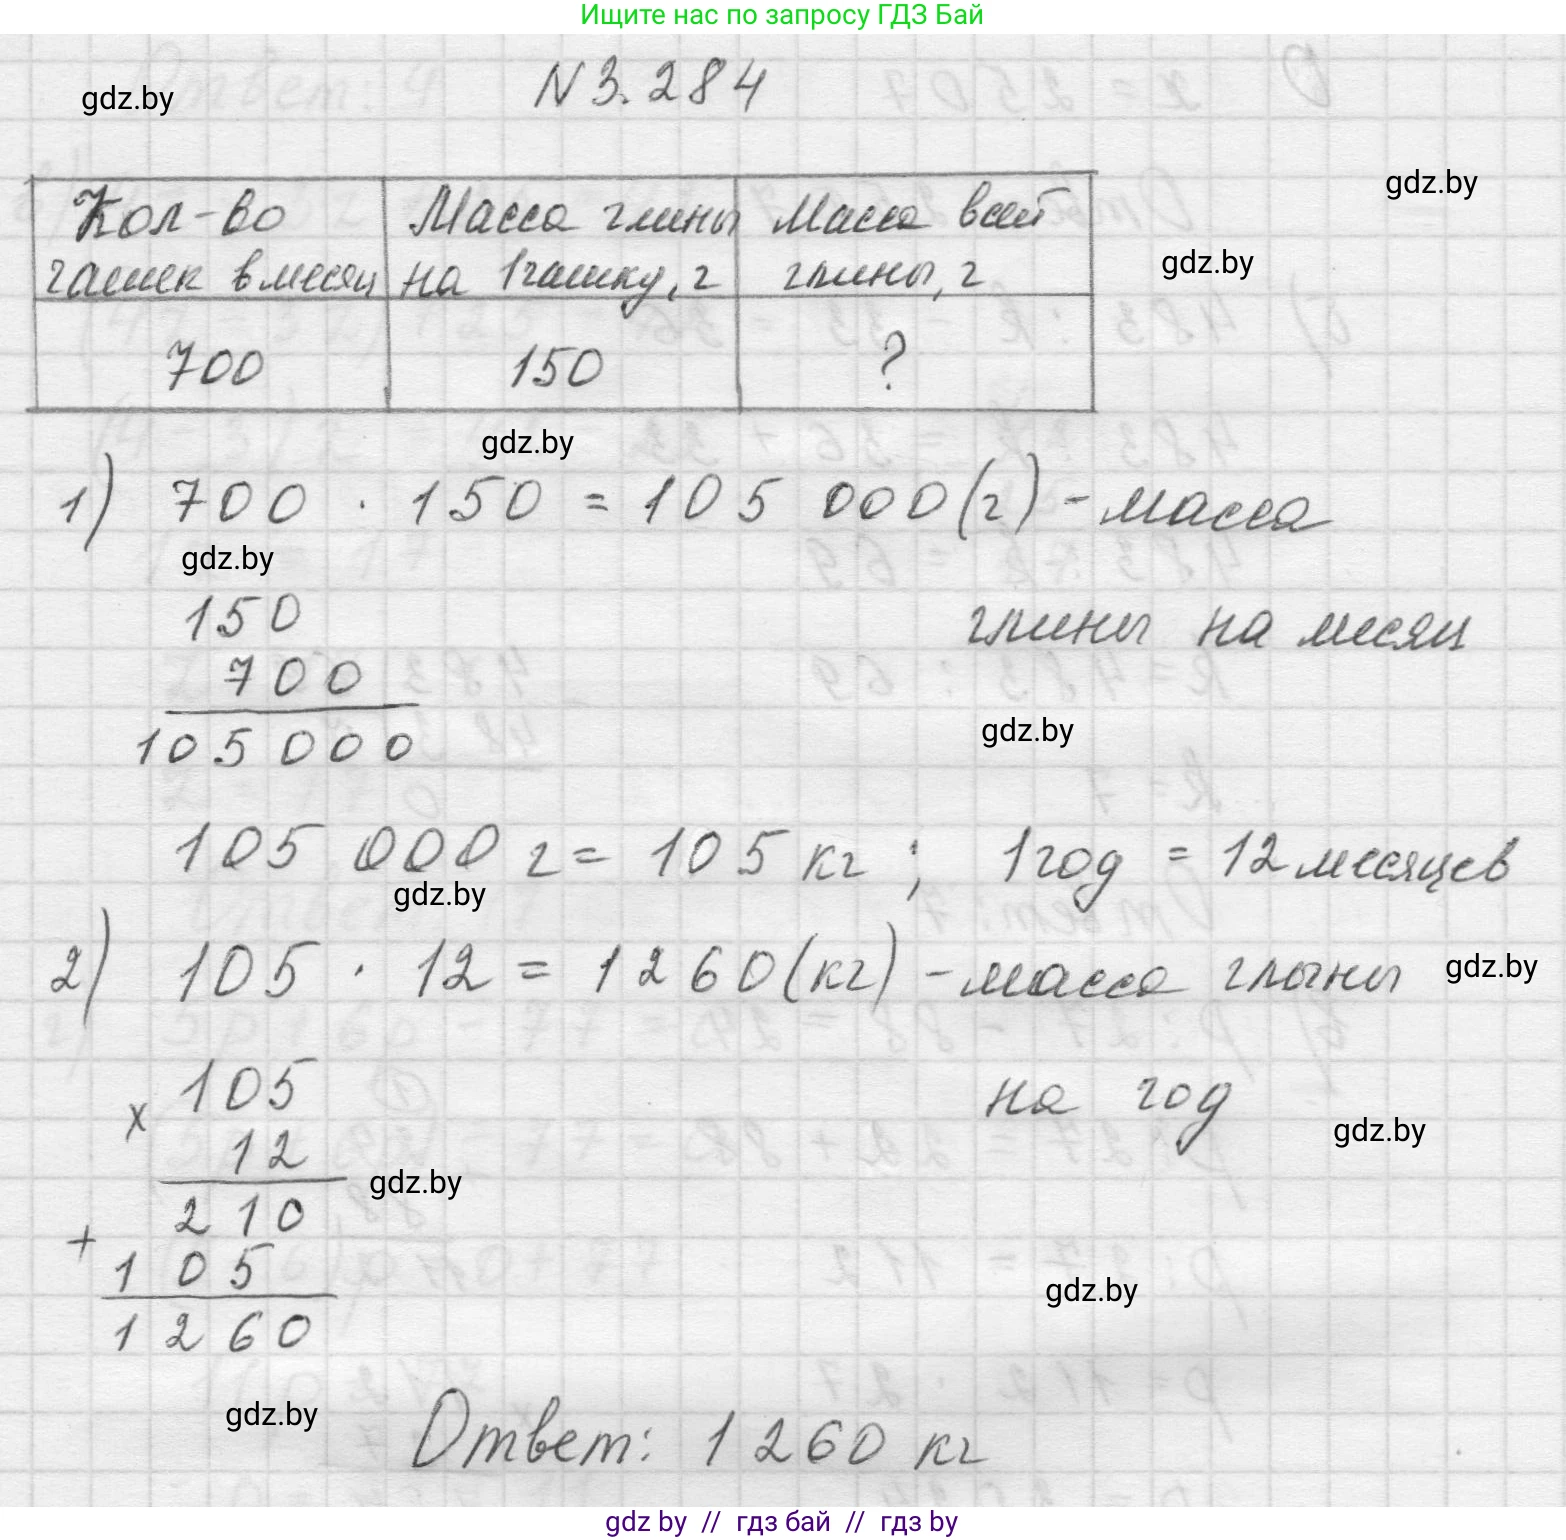 Ищите нас по запросу ГДЗ Бай
N 3.284
gdz.by
gdz.by
Кол-во чашек в месяц
Масса глины на 1 чашку, г
Масса всей глины, г
gdz.by
700 150 ?
gdz.by
1) 700 · 150 = 105 000 (г) - масса
gdz.by
глины на месяц
150
700
105000
gdz.by
105 000 г = 105 кг ; 1 год = 12 месяцев
gdz.by
2) 105 · 12 = 1260 (кг) - масса глины
gdz.by
на год
gdz.by
x 105
12
gdz.by
210
+
105
gdz.by
1260
gdz.by
Ответ: 1260 кг
gdz by // гдз бай // гдз by